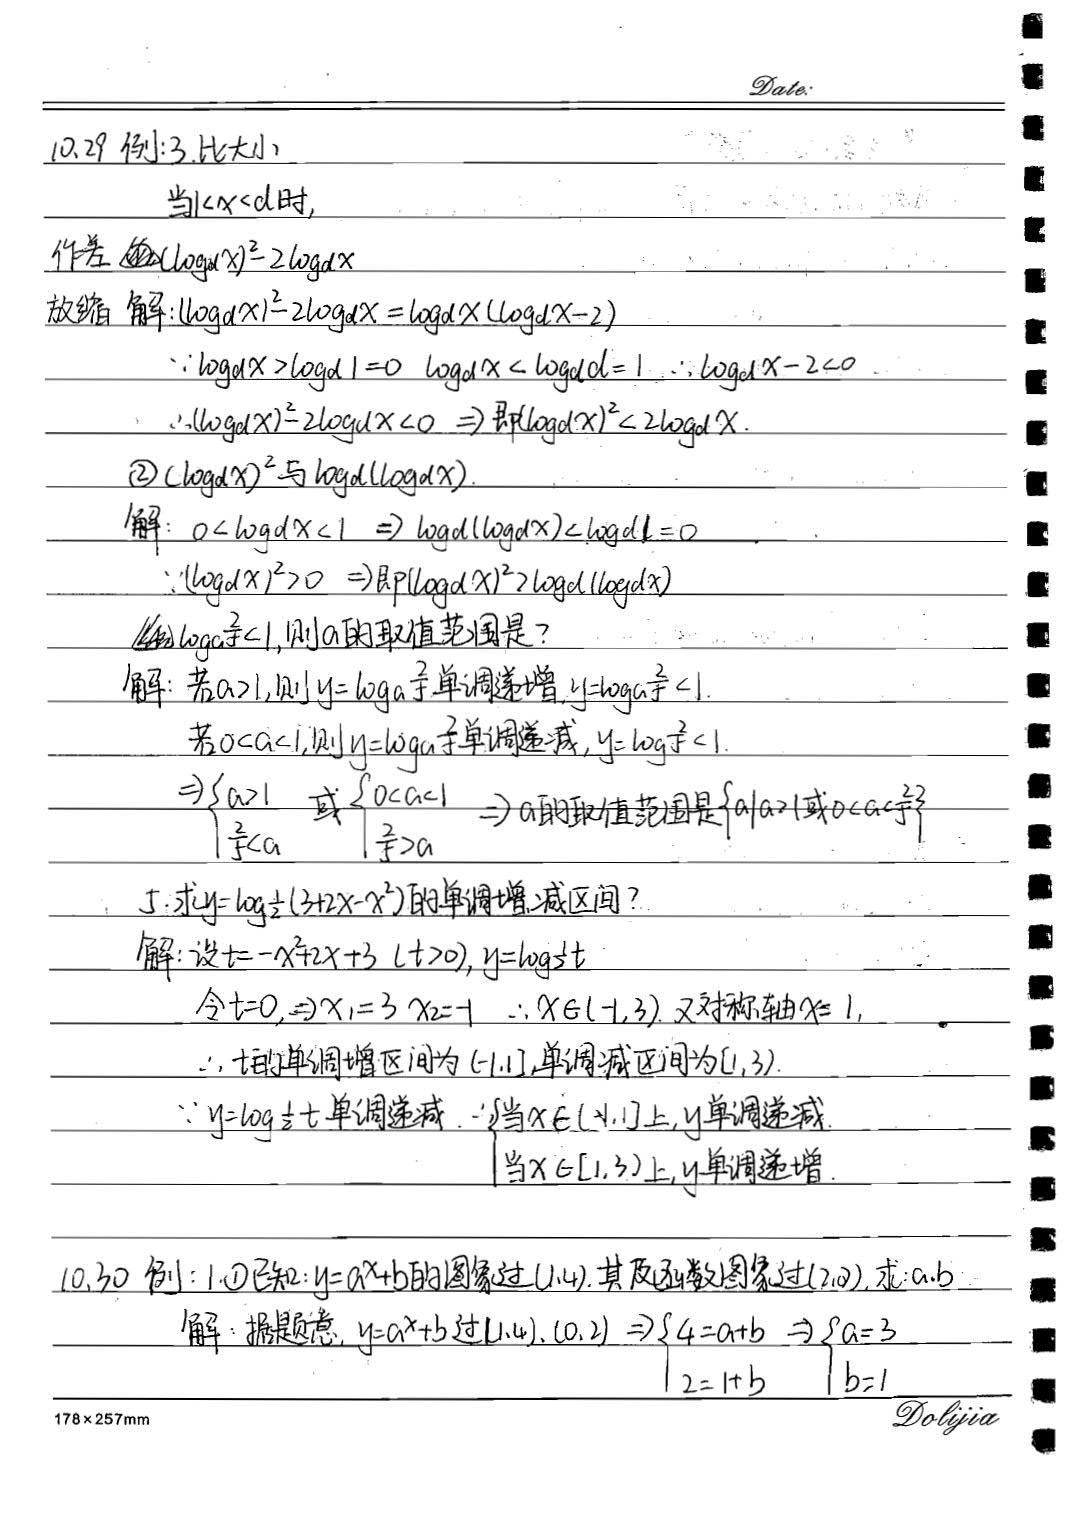 Date:
10.29 例:3.比大小
当1<x<d时,
作差 (logdx)²-2logdx
放缩 解:(logdx)²-2logdx=logdx(logdx-2)
∵logdx>logd1=0 logdx<logdd=1 ∴logdx-2<0
∴(logdx)²-2logdx<0 ⇒即(logdx)²<2logdx.
②(logdx)²与logd(logdx).
解: 0<logdx<1 ⇒ logd(logdx)<logd1=0
∵(logdx)²>0 ⇒即(logdx)²>logd(logdx)
loga2/5<1,则a的取值范围是?
解: 若a>1,则y=loga2/5单调递增,y=loga2/5<1.
若0<a<1,则y=loga2/5单调递减,y=log2/5<1.
⇒{a>1 或 {0<a<1 ⇒a的取值范围是{a|a>1或0<a<2/5}
2/5<a 2/5>a
5.求y=log1/2(3+2x-x²)的单调增.减区间?
解:设t=-x²+2x+3 (t>0),y=log1/2t
令t=0,⇒x₁=3 x₂=-1 ∴x∈(-1,3).又对称轴x=1,
∴t的单调增区间为(-1,1],单调减区间为[1,3).
∵y=log1/2t单调递减 ∴{当x∈(-1,1]上,y单调递减.
当x∈[1,3)上,y单调递增.
10.30 例:1.①已知:y=aˣ+b的图象过(1,4).其反函数图象过(2,0),求:a.b
解:据题意,y=aˣ+b过(1,4).(0,2) ⇒{4=a+b ⇒{a=3
2=1+b b=1
178×257mm
Dolijia